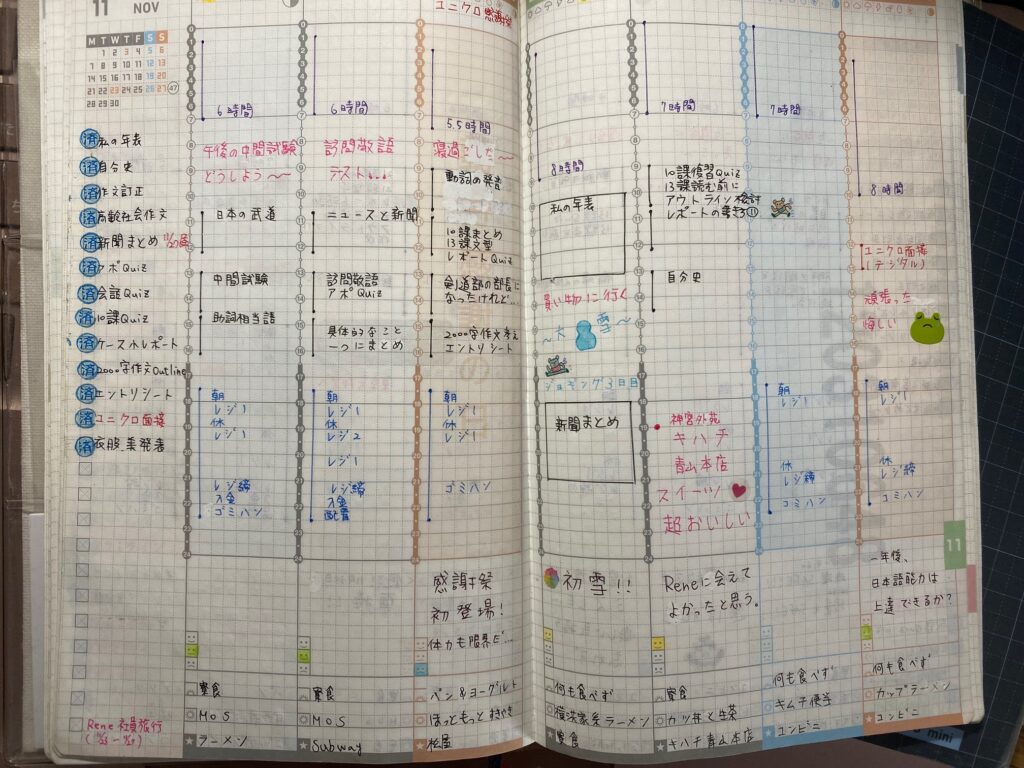 11 NOV
ユニクロ感謝祭
M T W T F S S
1 2 3 4 5 6
7 8 9 10 11 12 13
14 15 16 17 18 19 20
21 22 23 24 25 26 27 47
28 29 30
済 私の年表
済 自分史
済 作文訂正
済 高齢社会作文
済 新聞まとめ
済 アポQuiz
済 会話Quiz
済 10課Quiz
済 ケース小レポート
済 2000字作文Outline
済 エントリシート
済 ユニクロ面接
済 衣服、美発表
Rene 社員旅行
6時間
午後の中間試験
どうしよう〜
日本の武道
中間試験
助詞相当語
朝
レジ1
休
レジ1
レジ締
入金
ゴミハン
寮食
MOS
ラーメン
6時間
訪問敬語
テスト...
ニュースと新聞
訪問敬語
アポQuiz
具体的なこと
一つにまとめ
朝
レジ1
休
レジ2
レジ1
レジ締
入金
配置
寮食
MOS
Subway
5.5時間
寝過ごした〜
動詞の発音
10課まとめ
13課文型
レポートQuiz
剣道部の部長に
なったけれど…
2000字作文考え
エントリシート
朝
レジ1
休
レジ1
ゴミハン
感謝祭
初登場!
体力も限界だ...
パン&ヨーグルト
松屋
8時間
私の年表
買い物に行く
〜大雪〜
ジョギング3日目
新聞まとめ
初雪!!
何も食べず
横浜家系ラーメン
寮食
7時間
10課復習Quiz
13課読む前に
アウトライン検討
レポートの書き方⑪
自分史
神宮外苑
キハチ
青山本店
スイーツ
超おいしい
Reneに会えて
よかったと思う。
寮食
カツ丼と生茶
キハチ青山本店
7時間
朝
レジ1
休
レジ締
ゴミハン
何も食べず
キムチ便当
コンビニ
8時間
ユニクロ面接
(デジタル)
頑張った
悔しい
朝
レジ1
休
レジ締
ゴミハン
一年後、
日本語能力は
上達できるか?
何も食べず
カップラーメン
コンビニ
11
mini